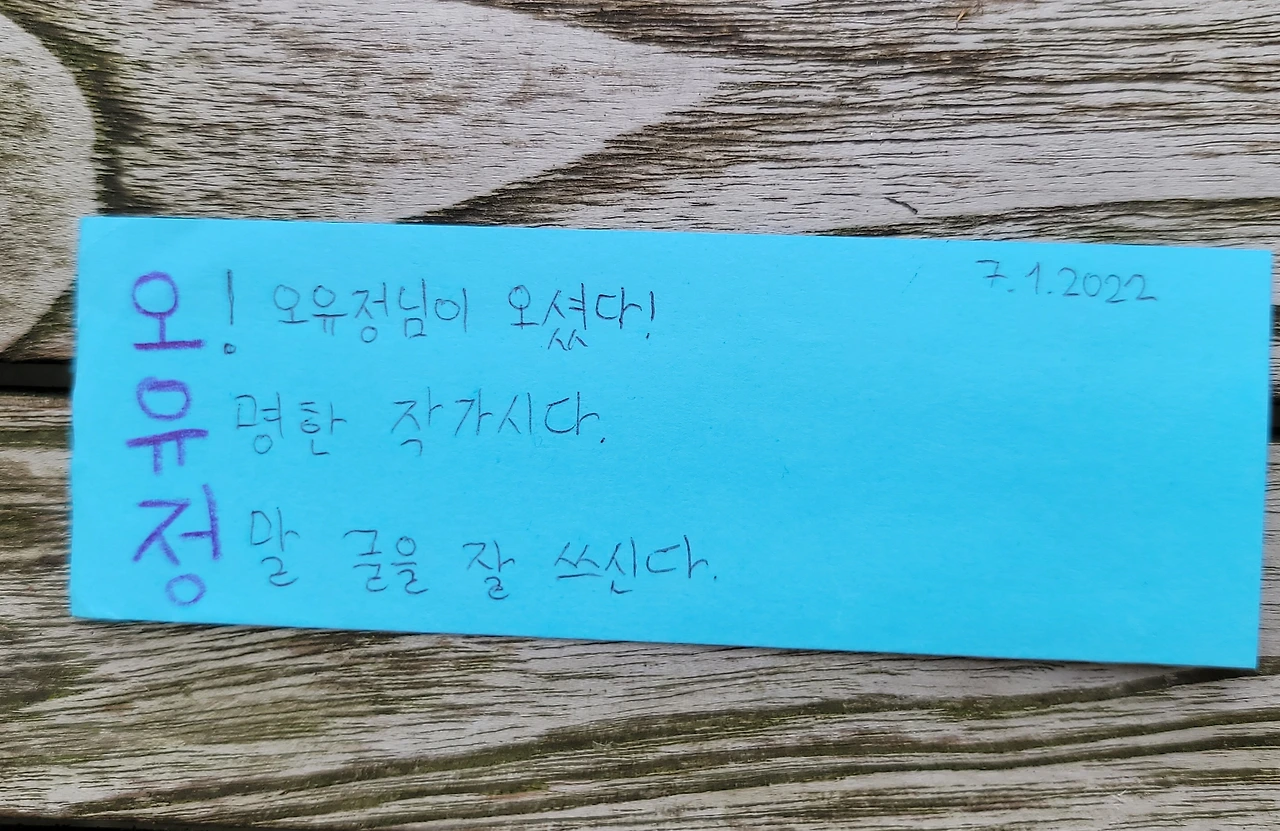 7.1.2022
오! 오유정님이 오셨다!
유명한 작가시다.
정말 글을 잘 쓰신다.